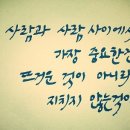 사람과 사람 사이에서
가장 중요한건
뜨거운 것이 아니라
지치지 않는것이